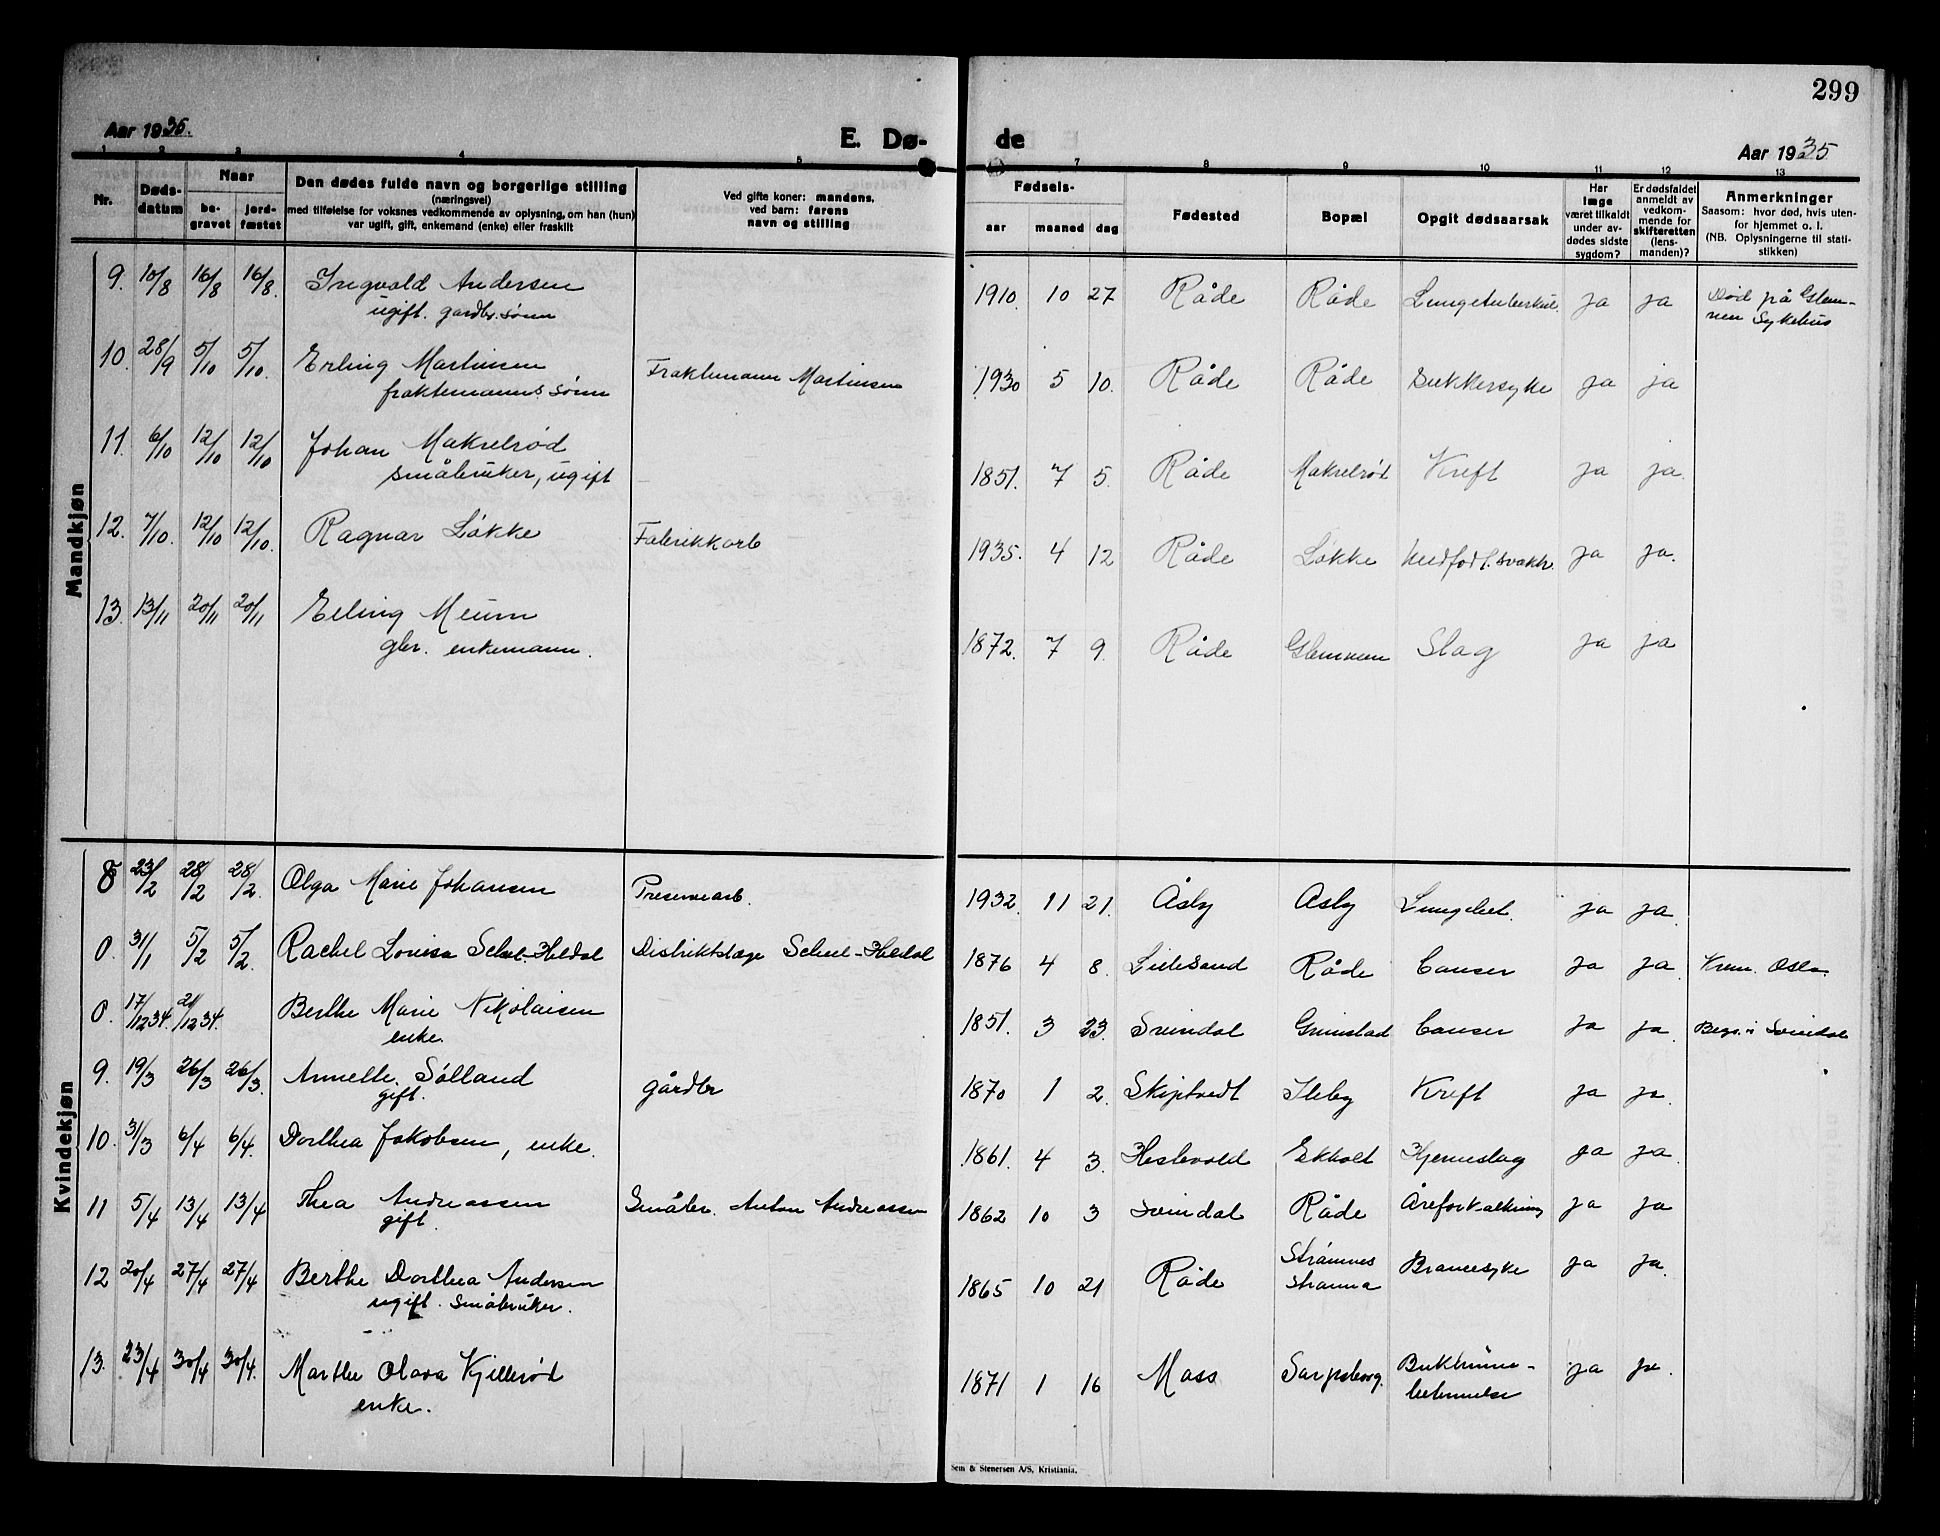 299
Aar 1935.
E. Dø-
de
Aar 1935
1 2 3 4 5 7 8 9 10 11 12 13
Nr.
Døds-
datum
Naar
be-
gravet
jord-
fæstet
Den dødes fulde navn og borgerlige stilling
(næringsvei)
med tilføielse for voksnes vedkommende av oplysning, om han (hun)
var ugift, gift, enkemand (enke) eller fraskilt
Ved gifte koner: mandens,
ved barn: farens
navn og stilling
Fødsels-
aar maaned dag
Fødested
Bopæl
Opgit dødsaarsak
Har
læge
været tilkaldt
under av-
dødes sidste
sygdom?
Er dødsfaldet
anmeldt av
vedkom-
mende for
skifteretten
(lens-
manden)?
Anmerkninger
Saasom: hvor død, hvis uten-
for hjemmet o. l.
(NB. Oplysningerne til stati-
stikken)
Mandkjøn
9. 10/8 16/8 16/8. Ingvald Andersen 1910. 10 27 Råde Råde Lungetuberkul. ja ja Død på Glem-
ugift. gardbr. sønn men Sykehus
10. 28/9 5/10 5/10. Erling Martinsen Fraktemann Martinsen 1930 5 10. Råde Råde Sukkersyke ja ja
fraktemanns sønn
11. 6/10 12/10 12/10 Johan Makrelrød 1851. 7 5. Råde Makrelrød Kreft ja ja.
småbruker, ugift
12. 7/10. 12/10 12/10. Ragnar Løkke Fabrikkarb 1935. 4 12 Råde Løkke Medfødt svakh. ja ja.
13. 13/11 20/11 20/11 Erling Meum 1872. 7 9. Råde Glemmen Slag ja ja
gbr. enkemann.
Kvindekjøn
8 23/2 28/2 28/2. Olga Marie Johansen Presennarb. 1932. 11 21. Åsby Åsby Lungebet. ja ja
0. 31/1 5/2 5/2. Rachel Lovisa Scheel-Hildal Distriktslæge Scheel-Hildal 1876 4 8. Lillesand Råde Canser ja ja Krem. Oslo.
0. 17/12 34. 21/12 34. Berthe Marie Nikolaisen 1851. 3 23. Svindal Grimstad Canser ja ja. Begr. i Svindal
enke.
9. 19/3 26/3 26/3. Annette Sølland gårdbr 1870 1 2. Skiptvedt Ileby Kreft ja ja.
gift.
10. 31/3 6/4 6/4. Dorthea Jakobsen, enke. 1861. 4 3. Hestevold Ekholt Hjerneslag ja ja.
11 5/4 13/4 13/4 Thea Andreassen Småbr. Anton Andreassen 1862 10 3 Svindal Råde Åreforkalkning ja ja
gift.
12 20/4 27/4 27/4 Berthe Dorthea Andersen 1865 10 21 Råde Strømnes ja ja.
ugift. småbruker.
13. 23/4 30/4 30/4. Marthe Olava Kjellerød 1871 1 16 Moss Sarpsborg. Bukhinne- ja ja.
enke. betennelse
Sem & Stenersen A/S, Kristiania.